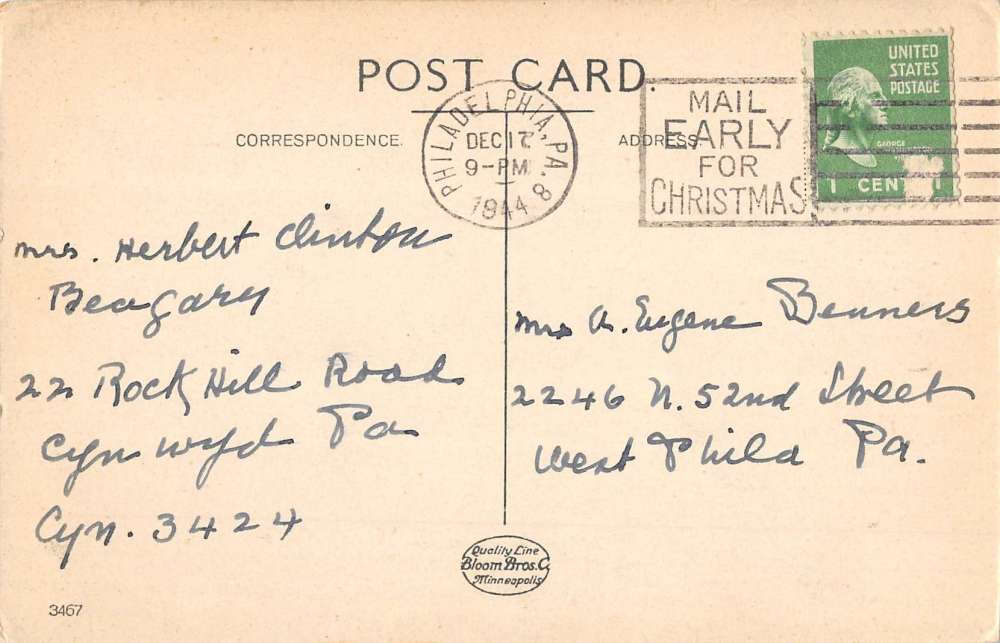 POST CARD.
CORRESPONDENCE.
ADDRESS
PHILADELPHIA, PA. 8
DEC 17
9-PM
1944
MAIL
EARLY
FOR
CHRISTMAS
UNITED
STATES
POSTAGE
GEORGE
1 CENT 1
Mrs. Herbert Clinton
Beagary
22 Rock Hill Road
Cynwyd Pa
Cyn. 3424
Mrs A. Eugene Benners
2246 N. 52nd Street
West Phila Pa.
Quality Line
Bloom Bros. C
Minneapolis
3467